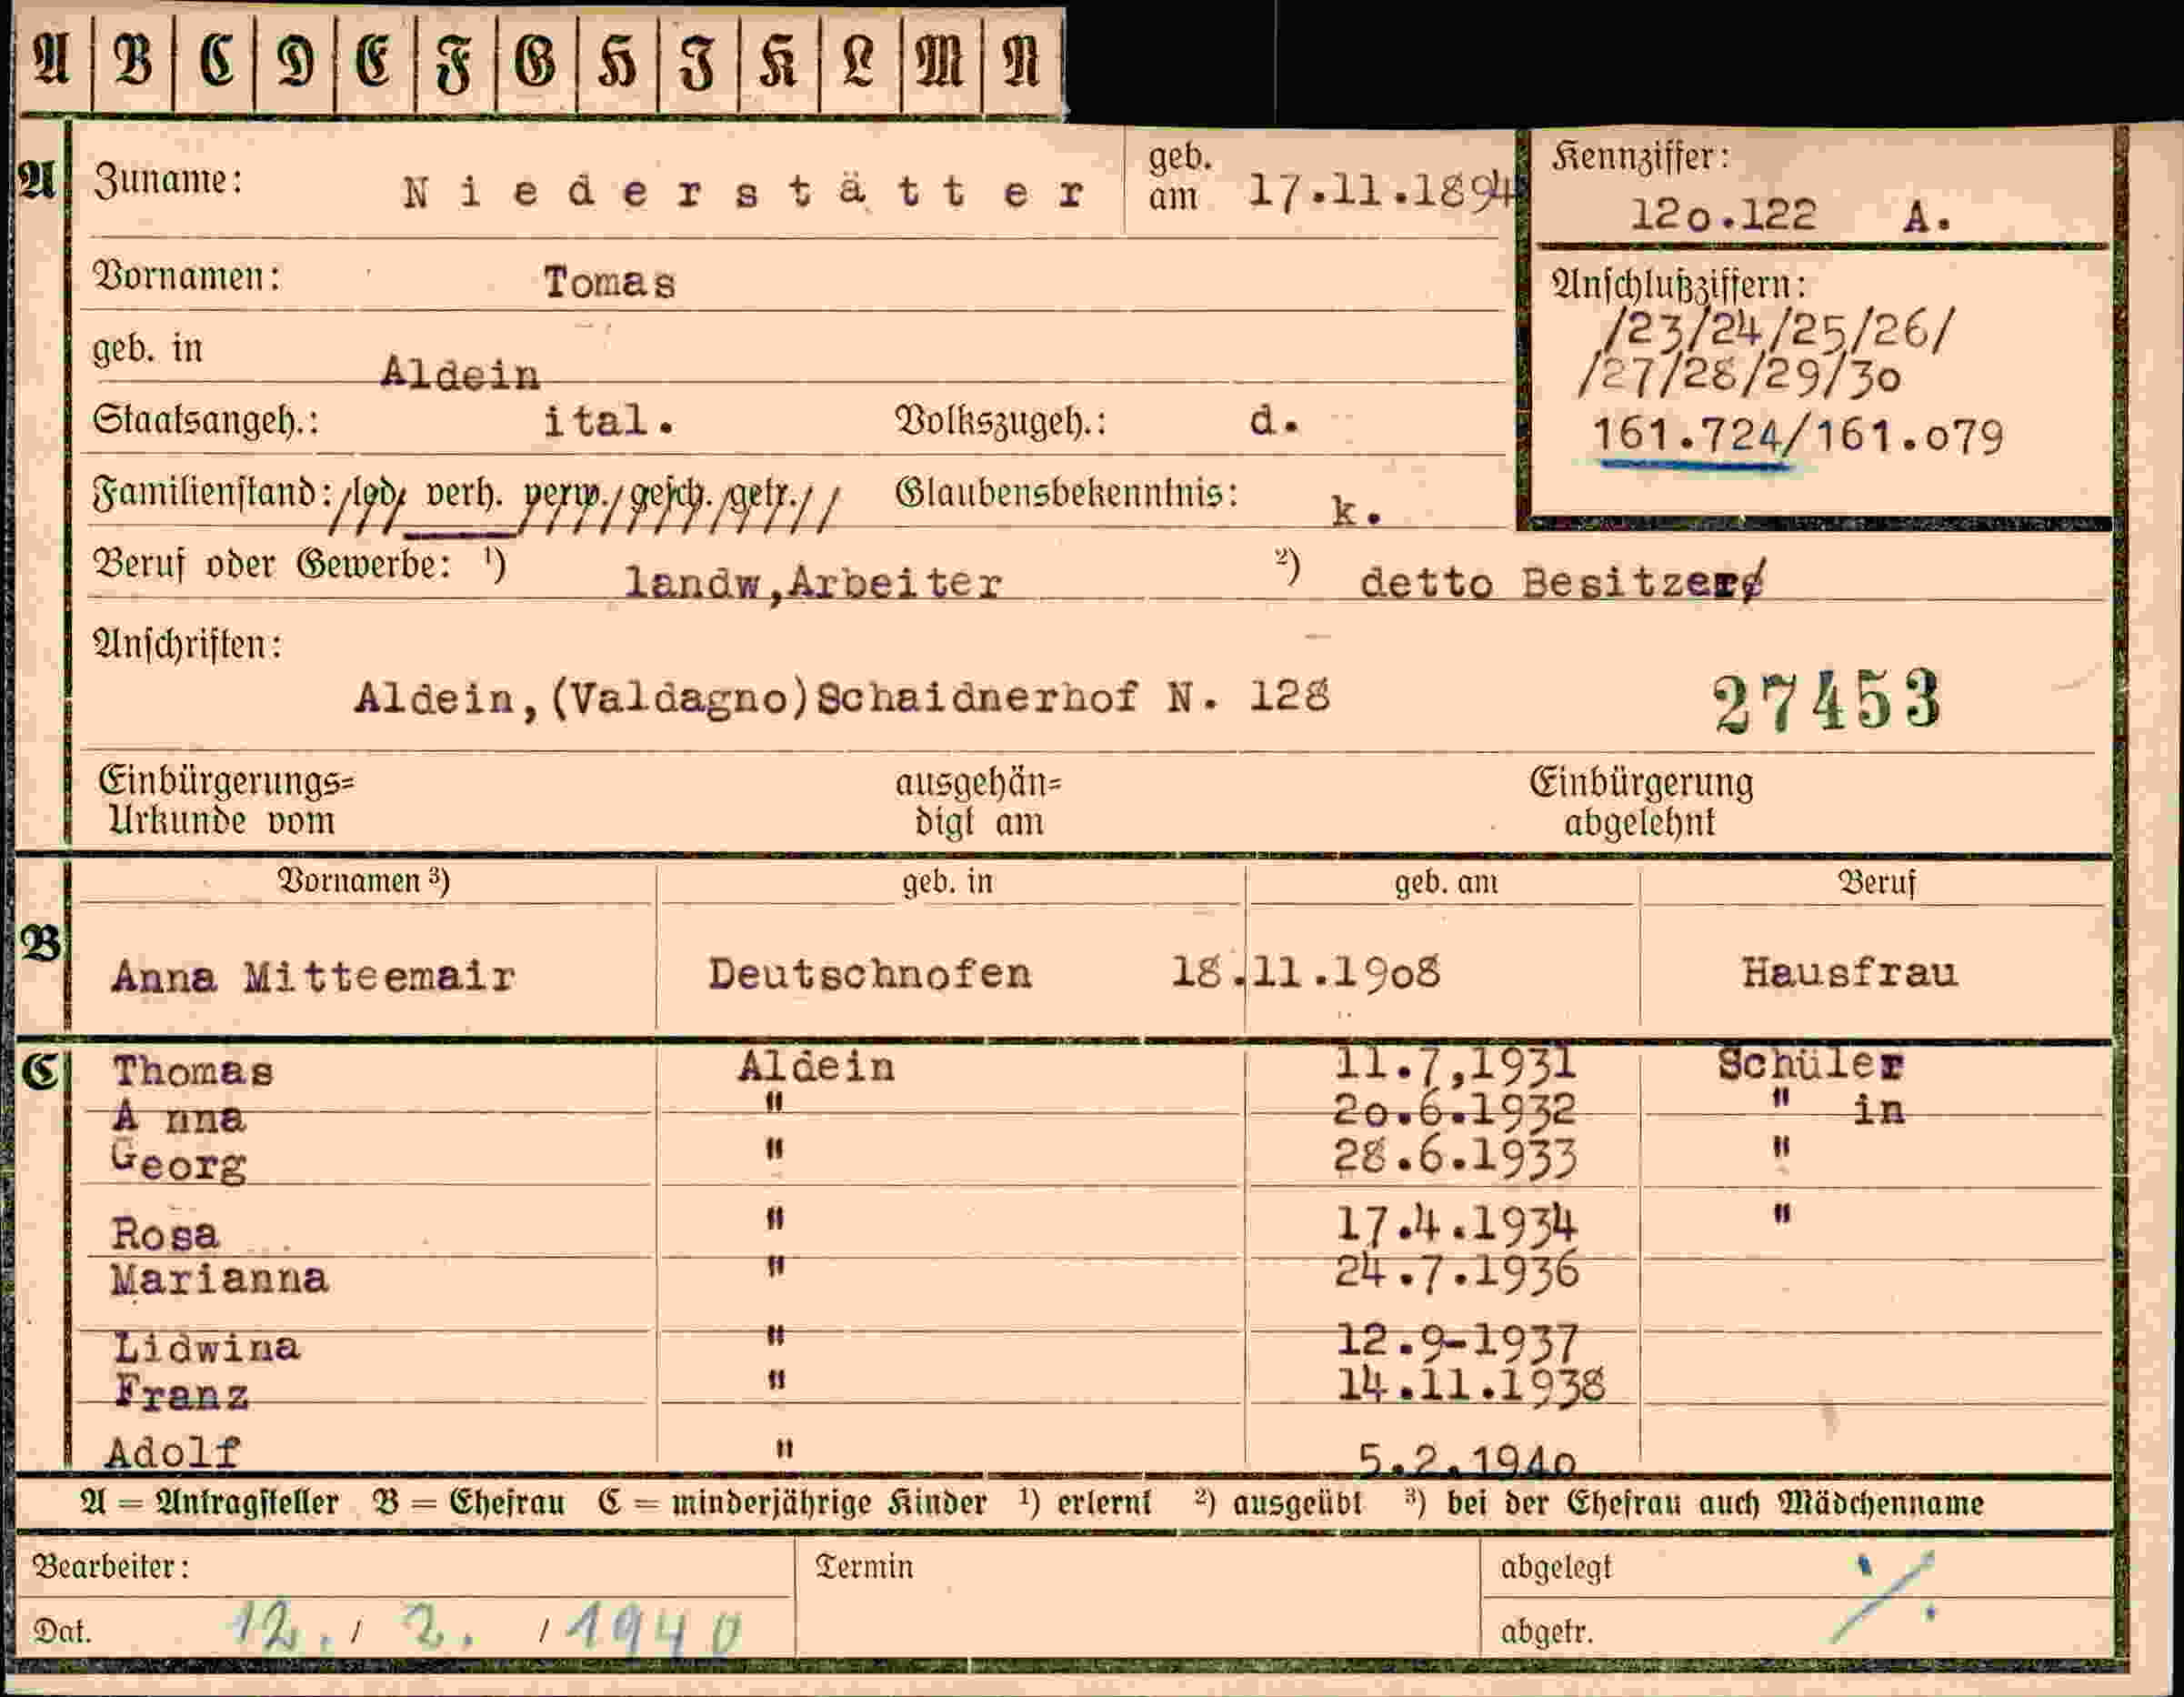 A B C D E F G H I K L M N
A Zuname: Niederstätter geb. am 17.11.1894 Kennziffer: 12o.122 A.
Vornamen: Tomas
Anschlußziffern:
/23/24/25/26/
/27/28/29/3o
161.724/161.o79
geb. in Aldein
Staatsangeh.: ital. Volkszugeh.: d.
Familienstand: led. verh. verw. gesch. getr. Glaubensbekenntnis: k.
Beruf oder Gewerbe: ¹) landw,Arbeiter ²) detto Besitzer
Anschriften:
Aldein,(Valdagno)Schaidnerhof N. 128 27453
Einbürgerungs= ausgehän= Einbürgerung
Urkunde vom digt am abgelehnt
Vornamen ³) geb. in geb. am Beruf
B Anna Mitteemair Deutschnofen 18.11.19o8 Hausfrau
C Thomas Aldein 11.7,1931 Schüler
A nna " 2o.6.1932 " in
Georg " 28.6.1933 "
Rosa " 17.4.1934 "
Marianna " 24.7.1936
Lidwina " 12.9-1937
Franz " 14.11.1938
Adolf " 5.2.194o
A = Antragsteller B = Ehefrau C = minderjährige Kinder ¹) erlernt ²) ausgeübt ³) bei der Ehefrau auch Mädchenname
Bearbeiter: Termin abgelegt
Dat. 12. / 2. / 1940 abgetr.